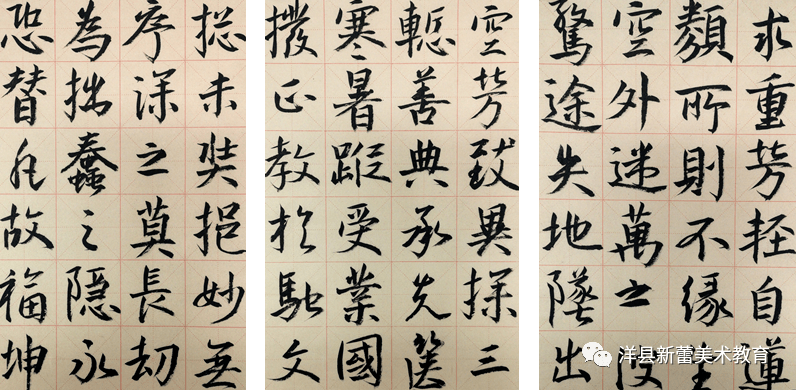 揔未奘挹妙無
序深之莫長劫
為拙蠢之隱永
恐替凡故福坤
空芳致異探三
慙善典承先篋
寒暑蹤受業國
撥正教於馳文
求重芳輕自蓮
類所則不緣生
空外迷萬之
驚途失地墜出
洋县新蕾美术教育